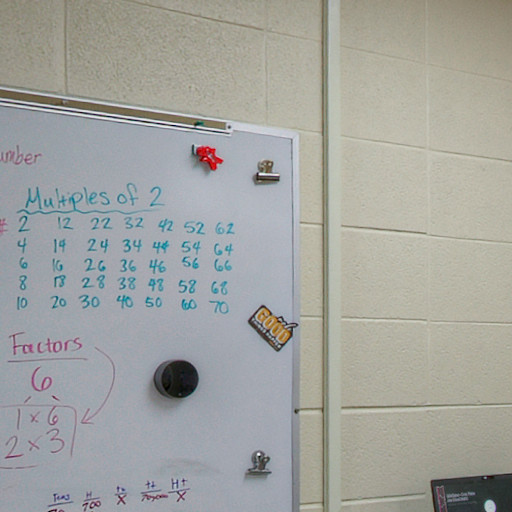 umber
Multiples of 2
# 2 12 22 32 42 52 62
4 14 24 34 44 54 64
6 16 26 36 46 56 66
8 18 28 38 48 58 68
10 20 30 40 50 60 70
GOOD
Factors
6
1 x 6
2 x 3
H
700 X X